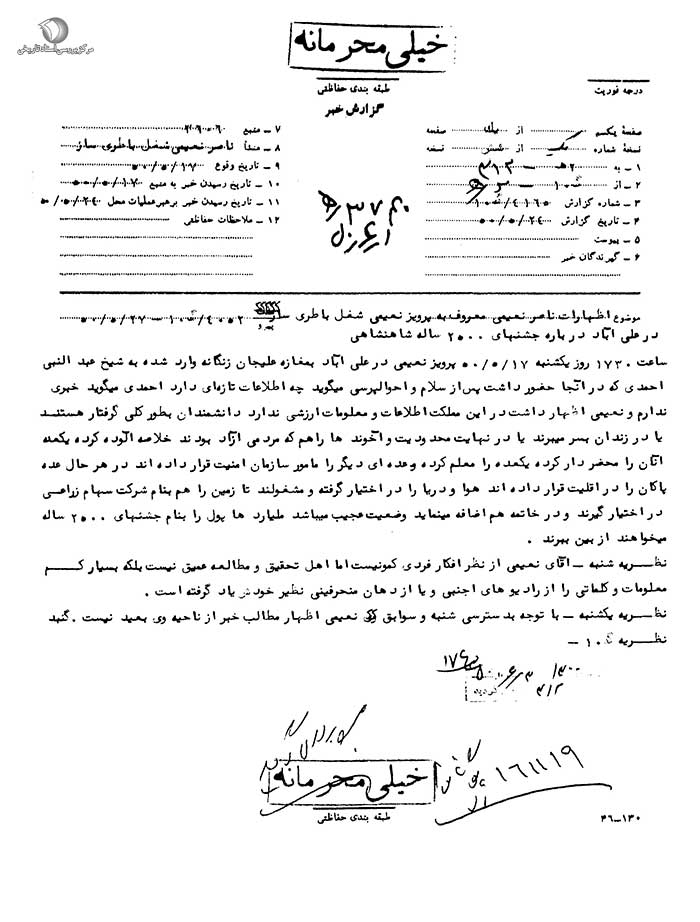 مرکز بررسی اسناد تاریخی
خیلی محرمانه
طبقه بندی حفاظتی
درجه فوریت
گزارش خبر
صفحهٔ یکم از یک صفحه
نسخهٔ شماره یک از شش نسخه
۱ ـ به ۲ هـ ـ ۳۱۲
۲ ـ از ۱۰
۳ ـ شماره گزارش ۴۱۶۵/
۴ ـ تاریخ گزارش ۵۰/۵/۲۴
۵ ـ پیوست
۶ ـ گیرندگان خبر
۷ ـ منبع ۲۹۰۶۰
۸ ـ منشأ ناصر نعیمی شغل باطری ساز
۹ ـ تاریخ وقوع ۵۰/۵/۱۷
۱۰ ـ تاریخ رسیدن خبر به منبع ۵۰/۵/۱۷
۱۱ ـ تاریخ رسیدن خبر برهبرعملیات محل ۵۰/۵/۲۴
۱۲ ـ ملاحظات حفاظتی
موضوع اظهارات ناصر نعیمی معروف به پرویز نعیمی شغل باطری ساز
در علی آباد درباره جشنهای ۲۵۰۰ ساله شاهنشاهی
ساعت ۱۷۳۰ روز یکشنبه ۵۰/۵/۱۷ پرویز نعیمی در علی آباد بمغازه علیجان زنگانه وارد شده به شیخ عبد النبی
احمدی که در آنجا حضور داشت پس از سلام و احوالپرسی میگوید چه اطلاعات تازه‌ای دارد احمدی میگوید خبری
ندارم و نعیمی اظهار داشت در این مملکت اطلاعات و معلومات ارزشی ندارد دانشمندان بطور کلی گرفتار هستند
یا در زندان بسر میبرند یا در نهایت محدودیت و آخوند ها راهم که مردمی آزاد بودند خلاصه آلوده کرده یکعده
آنان را محضر دار کرده یکعده را معلم کرده وعده ای دیگر را مامور سازمان امنیت قرار داده اند در هر حال عده
پاکان را در اقلیت قرار داده اند هوا و دریا را در اختیار گرفته و مشغولند تا زمین را هم بنام شرکت سهام زراعی
در اختیار گیرند و در خاتمه هم اضافه مینماید وضعیت عجیب میباشد ملیارد ها پول را بنام جشنهای ۲۵۰۰ ساله
میخواهند از بین ببرند .
نظریه شنبه ـ آقای نعیمی از نظر افکار فردی کمونیست اما اهل تحقیق و مطالعه عمیق نیست بلکه بسیار کم
معلومات و کلماتی را از رادیو های اجنبی و یا از دهان منحرفینی نظیر خودش یاد گرفته است .
نظریه یکشنبه ـ با توجه بدسترسی شنبه و سوابق نعیمی اظهار مطالب خبر از ناحیه وی بعید نیست . گنبد
نظریه ۱۰ ـ
گردید ۳۱۲
خیلی محرمانه
طبقه بندی حفاظتی
۱۶۱۱۱۹
۴۶ـ۱۳۰